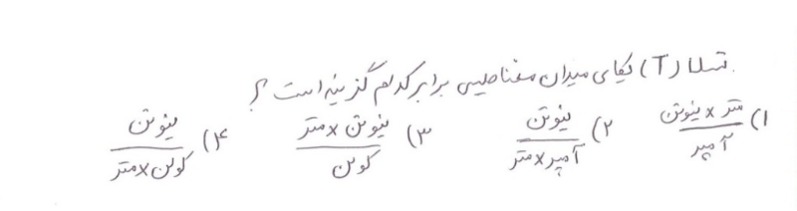 تسلا (T) یکای میدان مغناطیسی برابر کدام گزینه است ؟
۱) متر × نیوتن / آمپر ۲) نیوتن / آمپر × متر ۳) نیوتن × متر / کولن ۴) نیوتن / کولن × متر